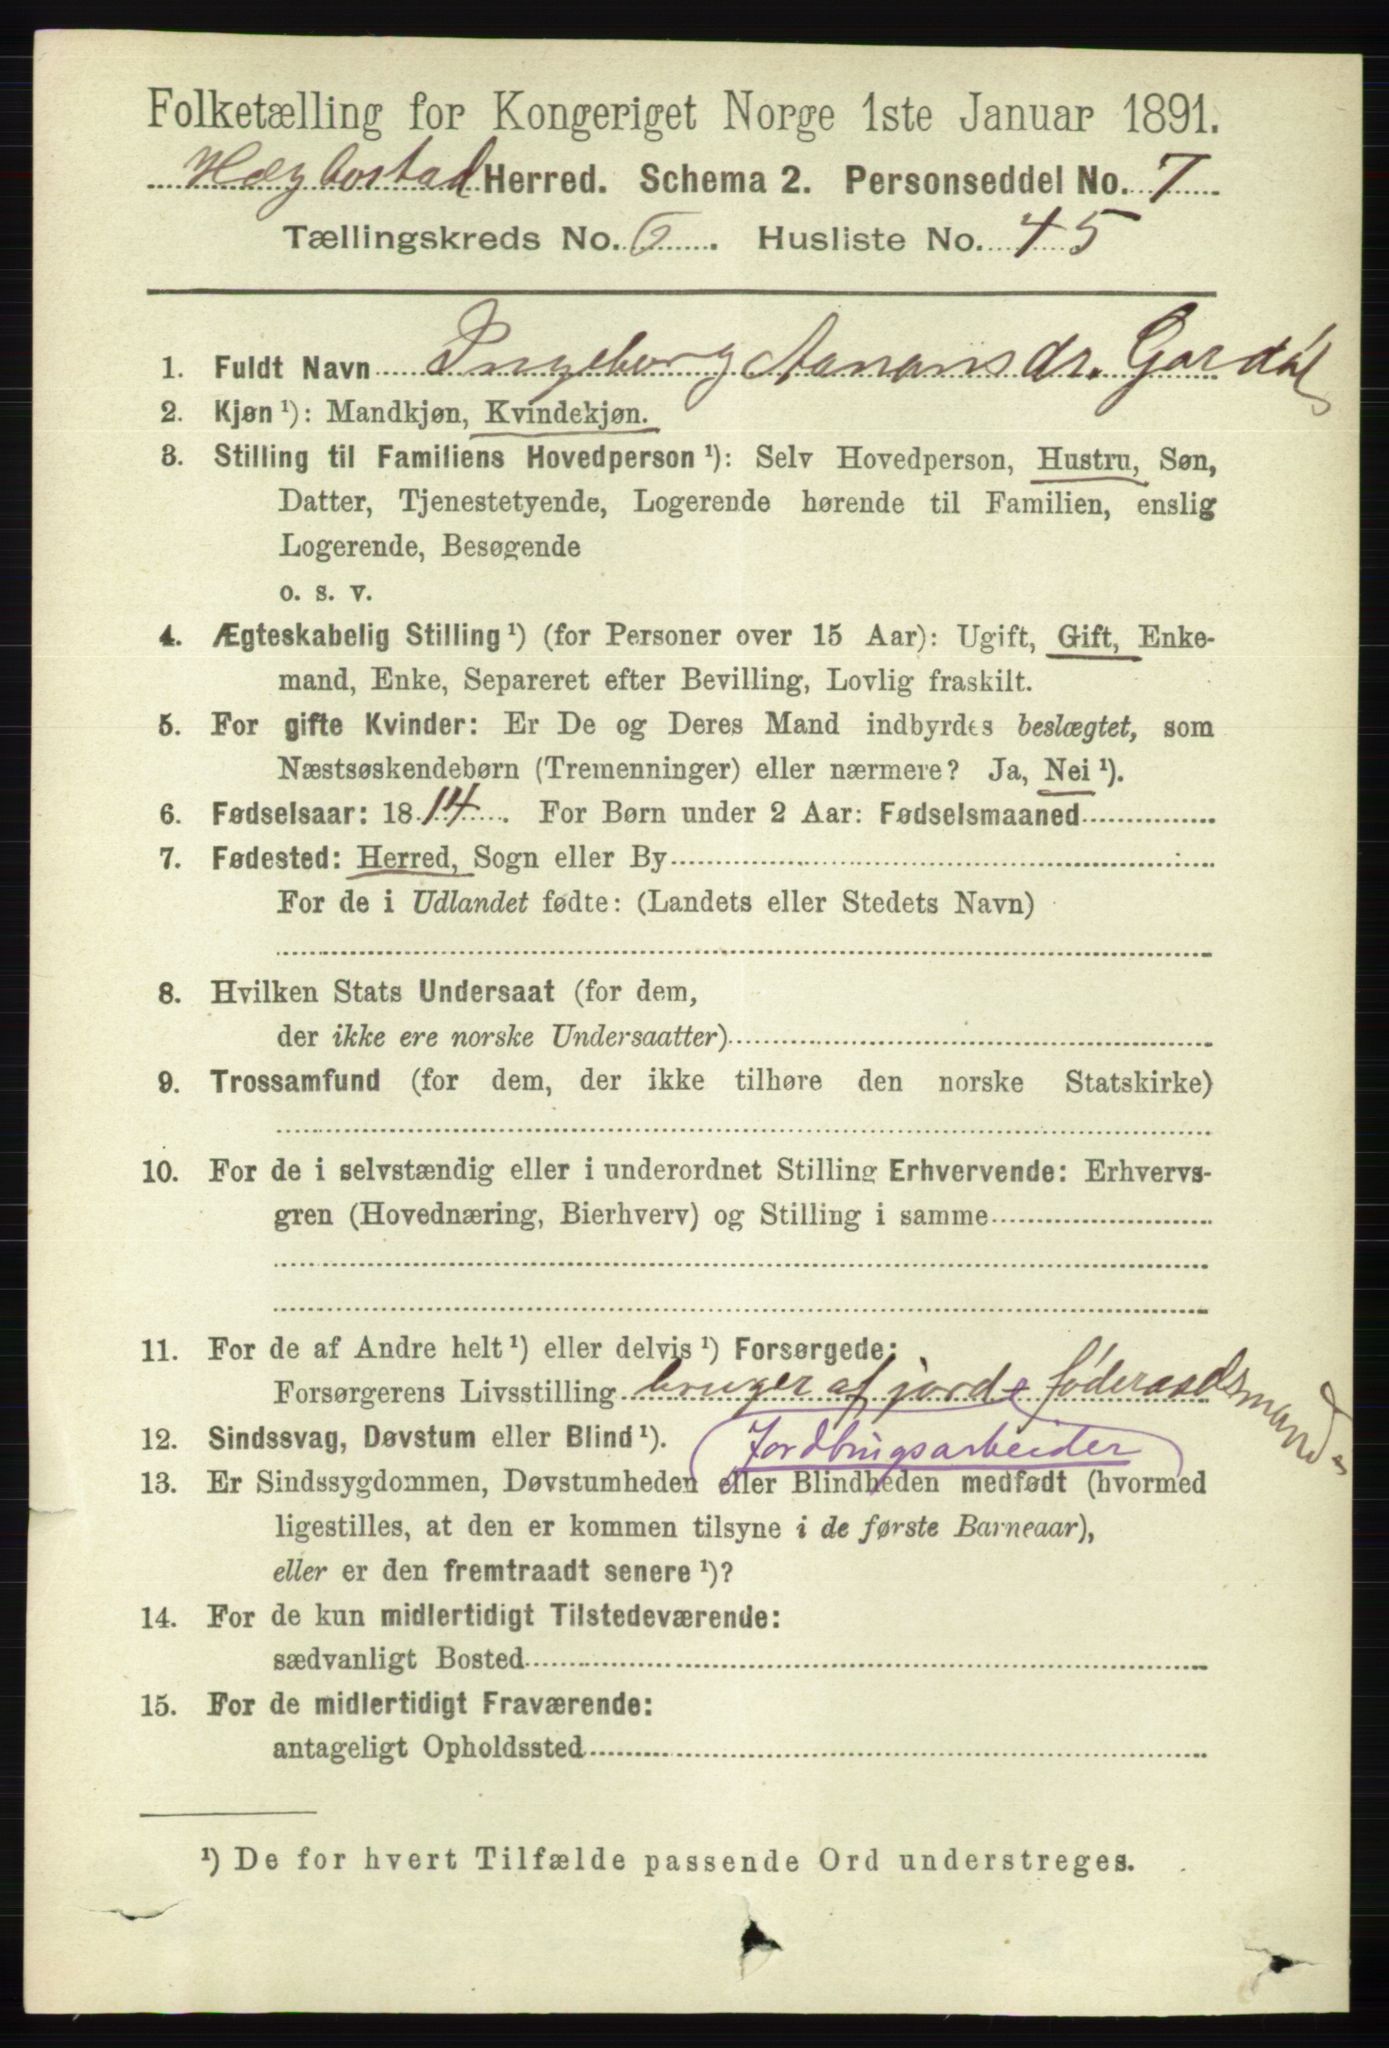 Folketælling for Kongeriget Norge 1ste Januar 1891.
Hægbostad Herred. Schema 2. Personseddel No. 7
Tællingskreds No. 6. Husliste No. 45
1. Fuldt Navn Ingeborg Aanonsdr. Gardól
2. Kjøn ¹): Mandkjøn, Kvindekjøn.
3. Stilling til Familiens Hovedperson ¹): Selv Hovedperson, Hustru, Søn,
Datter, Tjenestetyende, Logerende hørende til Familien, enslig
Logerende, Besøgende
o. s. v.
4. Ægteskabelig Stilling ¹) (for Personer over 15 Aar): Ugift, Gift, Enke-
mand, Enke, Separeret efter Bevilling, Lovlig fraskilt.
5. For gifte Kvinder: Er De og Deres Mand indbyrdes beslægtet, som
Næstsøskendebørn (Tremenninger) eller nærmere? Ja, Nei ¹).
6. Fødselsaar: 1814. For Børn under 2 Aar: Fødselsmaaned
7. Fødested: Herred, Sogn eller By
For de i Udlandet fødte: (Landets eller Stedets Navn)
8. Hvilken Stats Undersaat (for dem,
der ikke ere norske Undersaatter)
9. Trossamfund (for dem, der ikke tilhøre den norske Statskirke)
10. For de i selvstændig eller i underordnet Stilling Erhvervende: Erhvervs-
gren (Hovednæring, Bierhverv) og Stilling i samme
11. For de af Andre helt ¹) eller delvis ¹) Forsørgede:
Forsørgerens Livsstilling bruger af jord føderaadsmand
12. Sindssvag, Døvstum eller Blind ¹). Jordbrugsarbeider
13. Er Sindssygdommen, Døvstumheden eller Blindheden medfødt (hvormed
ligestilles, at den er kommen tilsyne i de første Barneaar),
eller er den fremtraadt senere ¹)?
14. For de kun midlertidigt Tilstedeværende:
sædvanligt Bosted
15. For de midlertidigt Fraværende:
antageligt Opholdssted
¹) De for hvert Tilfælde passende Ord understreges.